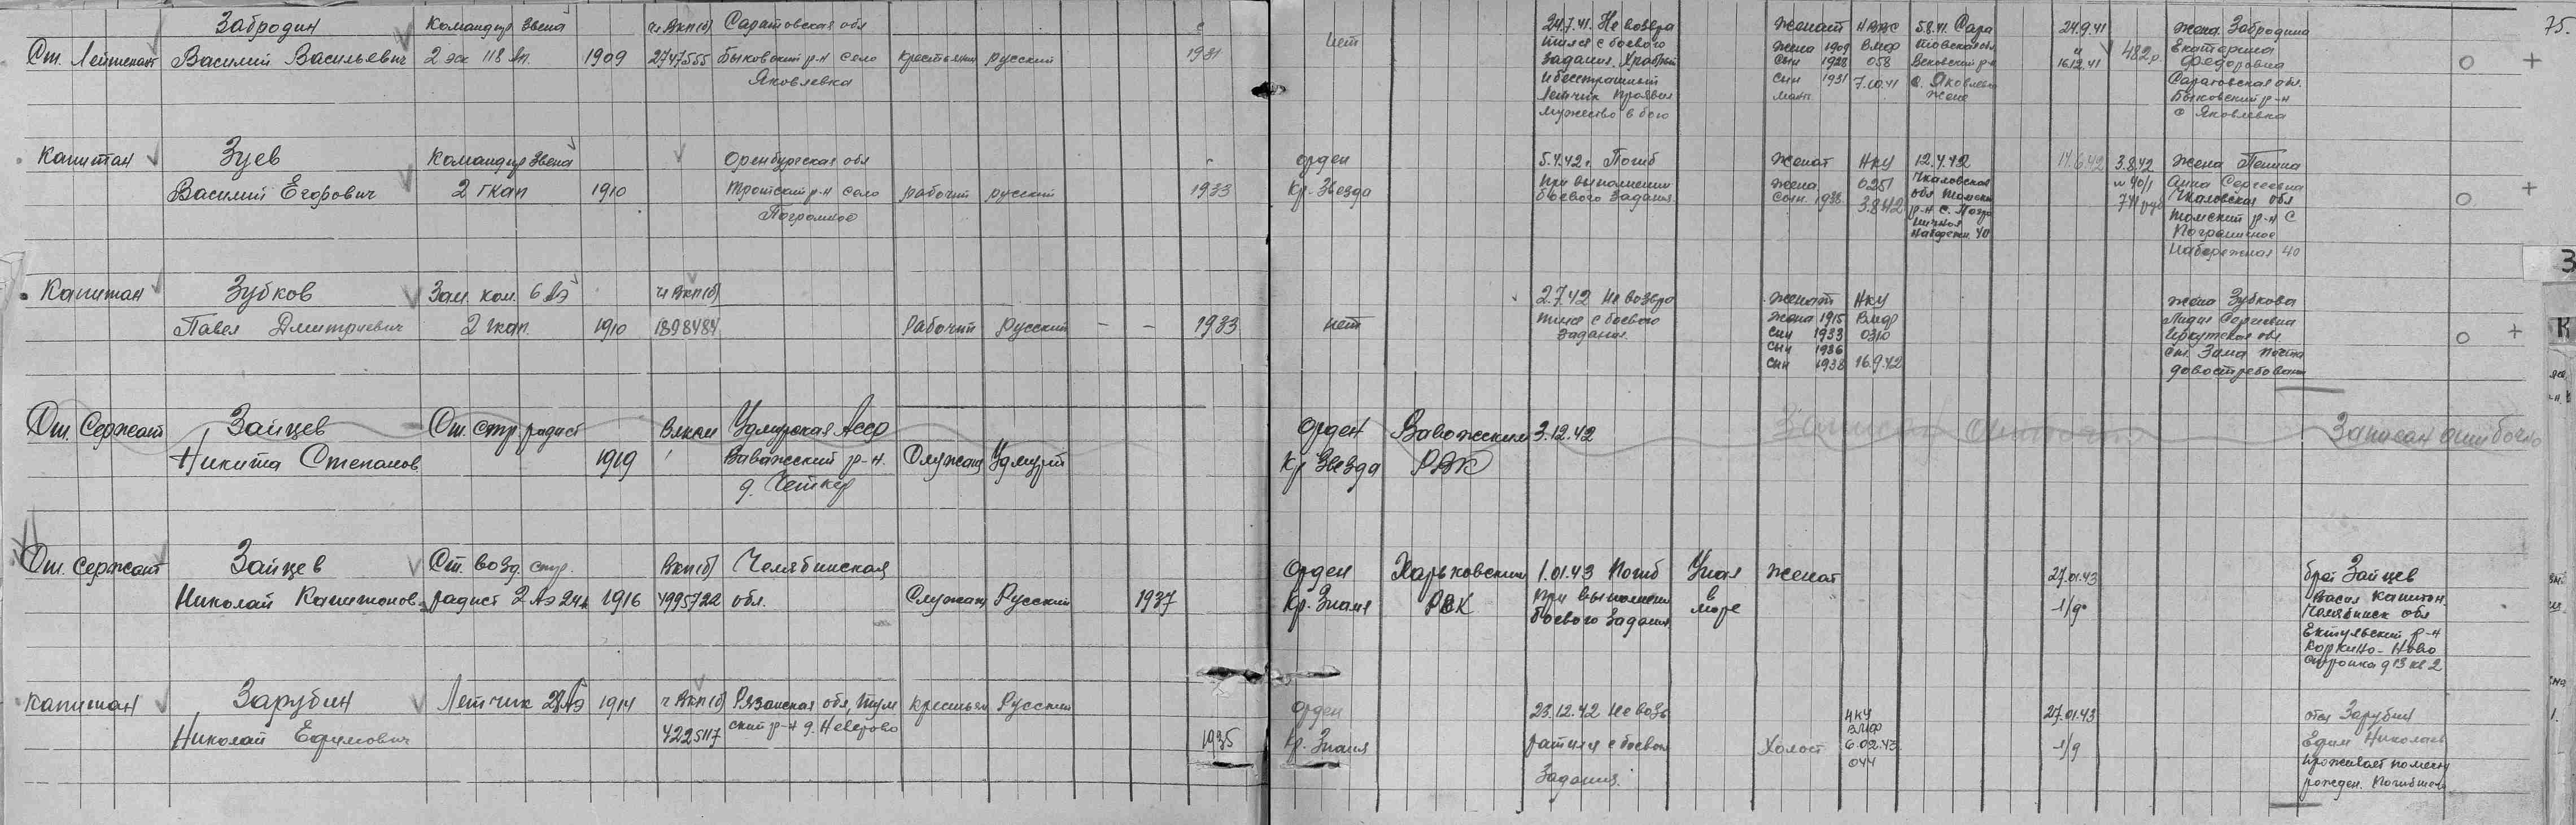 75.
Ст. Лейтенант
Забродин
Василий Васильевич
Командир звена
2 эск 118 ап.
1909
чл ВКП(б)
2747555
Саратовская обл
Быковский р-н село
Яковлевка
крестьянин
русский
с
1931
нет
24.7.41. Не возвра
тился с боевого
задания. Храбрый
и бесстрашный
летчик проявил
мужество в бою
Женат
жена 1909
сын 1928
сын 1931
мать
ВМФ
058
7.10.41
5.8.41 Сара
товская обл
с. Яковлевка
жене
24.9.41
и
16.12.41
482 р.
жена Забродина
Екатерина
Федоровна
Саратовская обл.
Быковский р-н
с Яковлевка
о +
Капитан
Зуев
Василий Егорович
Командир звена
2 гкап
1910
Оренбургская обл
Троитский р-н село
Погромное
рабочий
русский
1933
орден
Кр. Звезда
5.4.42 г. Погиб
при выполнении
боевого задания.
Женат
жена
сын. 1938
НКУ
0251
3.8.42
12.4.42
Чкаловская
14.6.42
3.8.42
№ 90/1
жена
Анна Сергеевна
Чкаловская обл
р-н с
Пограничное
Набережная 40
о +
З
Капитан
Зубков
Павел Дмитриевич
Зам. ком. 6 АЭ
2 гкап.
1910
чл ВКП(б)
1898484
Рабочий
русский
–
–
1933
нет
2.7.42 Не возвра
тился с боевого
задания.
женат
жена 1915
сын 1933
сын 1936
сын 1938
НКУ
ВМФ
0310
16.9.42
жена Зубкова
Лидия Сергеевна
Иркутская обл
ст. Зима почта
довостребования
о +
К
Ст. Сержант
Зайцев
Никита Степанов.
Ст. стр. радист
1919
ВЛКСМ
Удмурская Асср
Вавожский р-н.
д. Четкер
Служащ
Удмурт
орден
Кр Звезда
Вавожским
РВК
3.12.42
Записан ошибочно
Записан ошибочно
Ст. Сержант
Зайцев
Николай Капитонов.
Ст. возд стр.
радист 2 АЭ 24 ап
1916
ВКП(б)
4995722
Челябинская
обл.
Служащ
Русский
1937
Орден
Кр. Знамя
Харьковским
РВК
1.01.43 Погиб
при выполнени
боевого задания.
Упал
в
море
женат
27.01.43
1/д
брат Зайцев
Васил Капитон.
Челябинск обл
р-н
Коркино-Ново
стройка д 13 кв 2
капитан
Зарубин
Николай Ефимович
Летчик 2 АЭ
1914
ч ВКП(б)
4225117
Рязанская обл, Тум
ский р-н д. Неверово
крестьян
Русский
1935
орден
Кр. Знамя
23.12.42 Не возв
ратился с боевого
задания.
Холост
НКУ
ВМФ
6.02.43
044
27.01.43
1/д
отец Зарубин
Ефим Николаев
проживает по месту
рожден. Погибшего